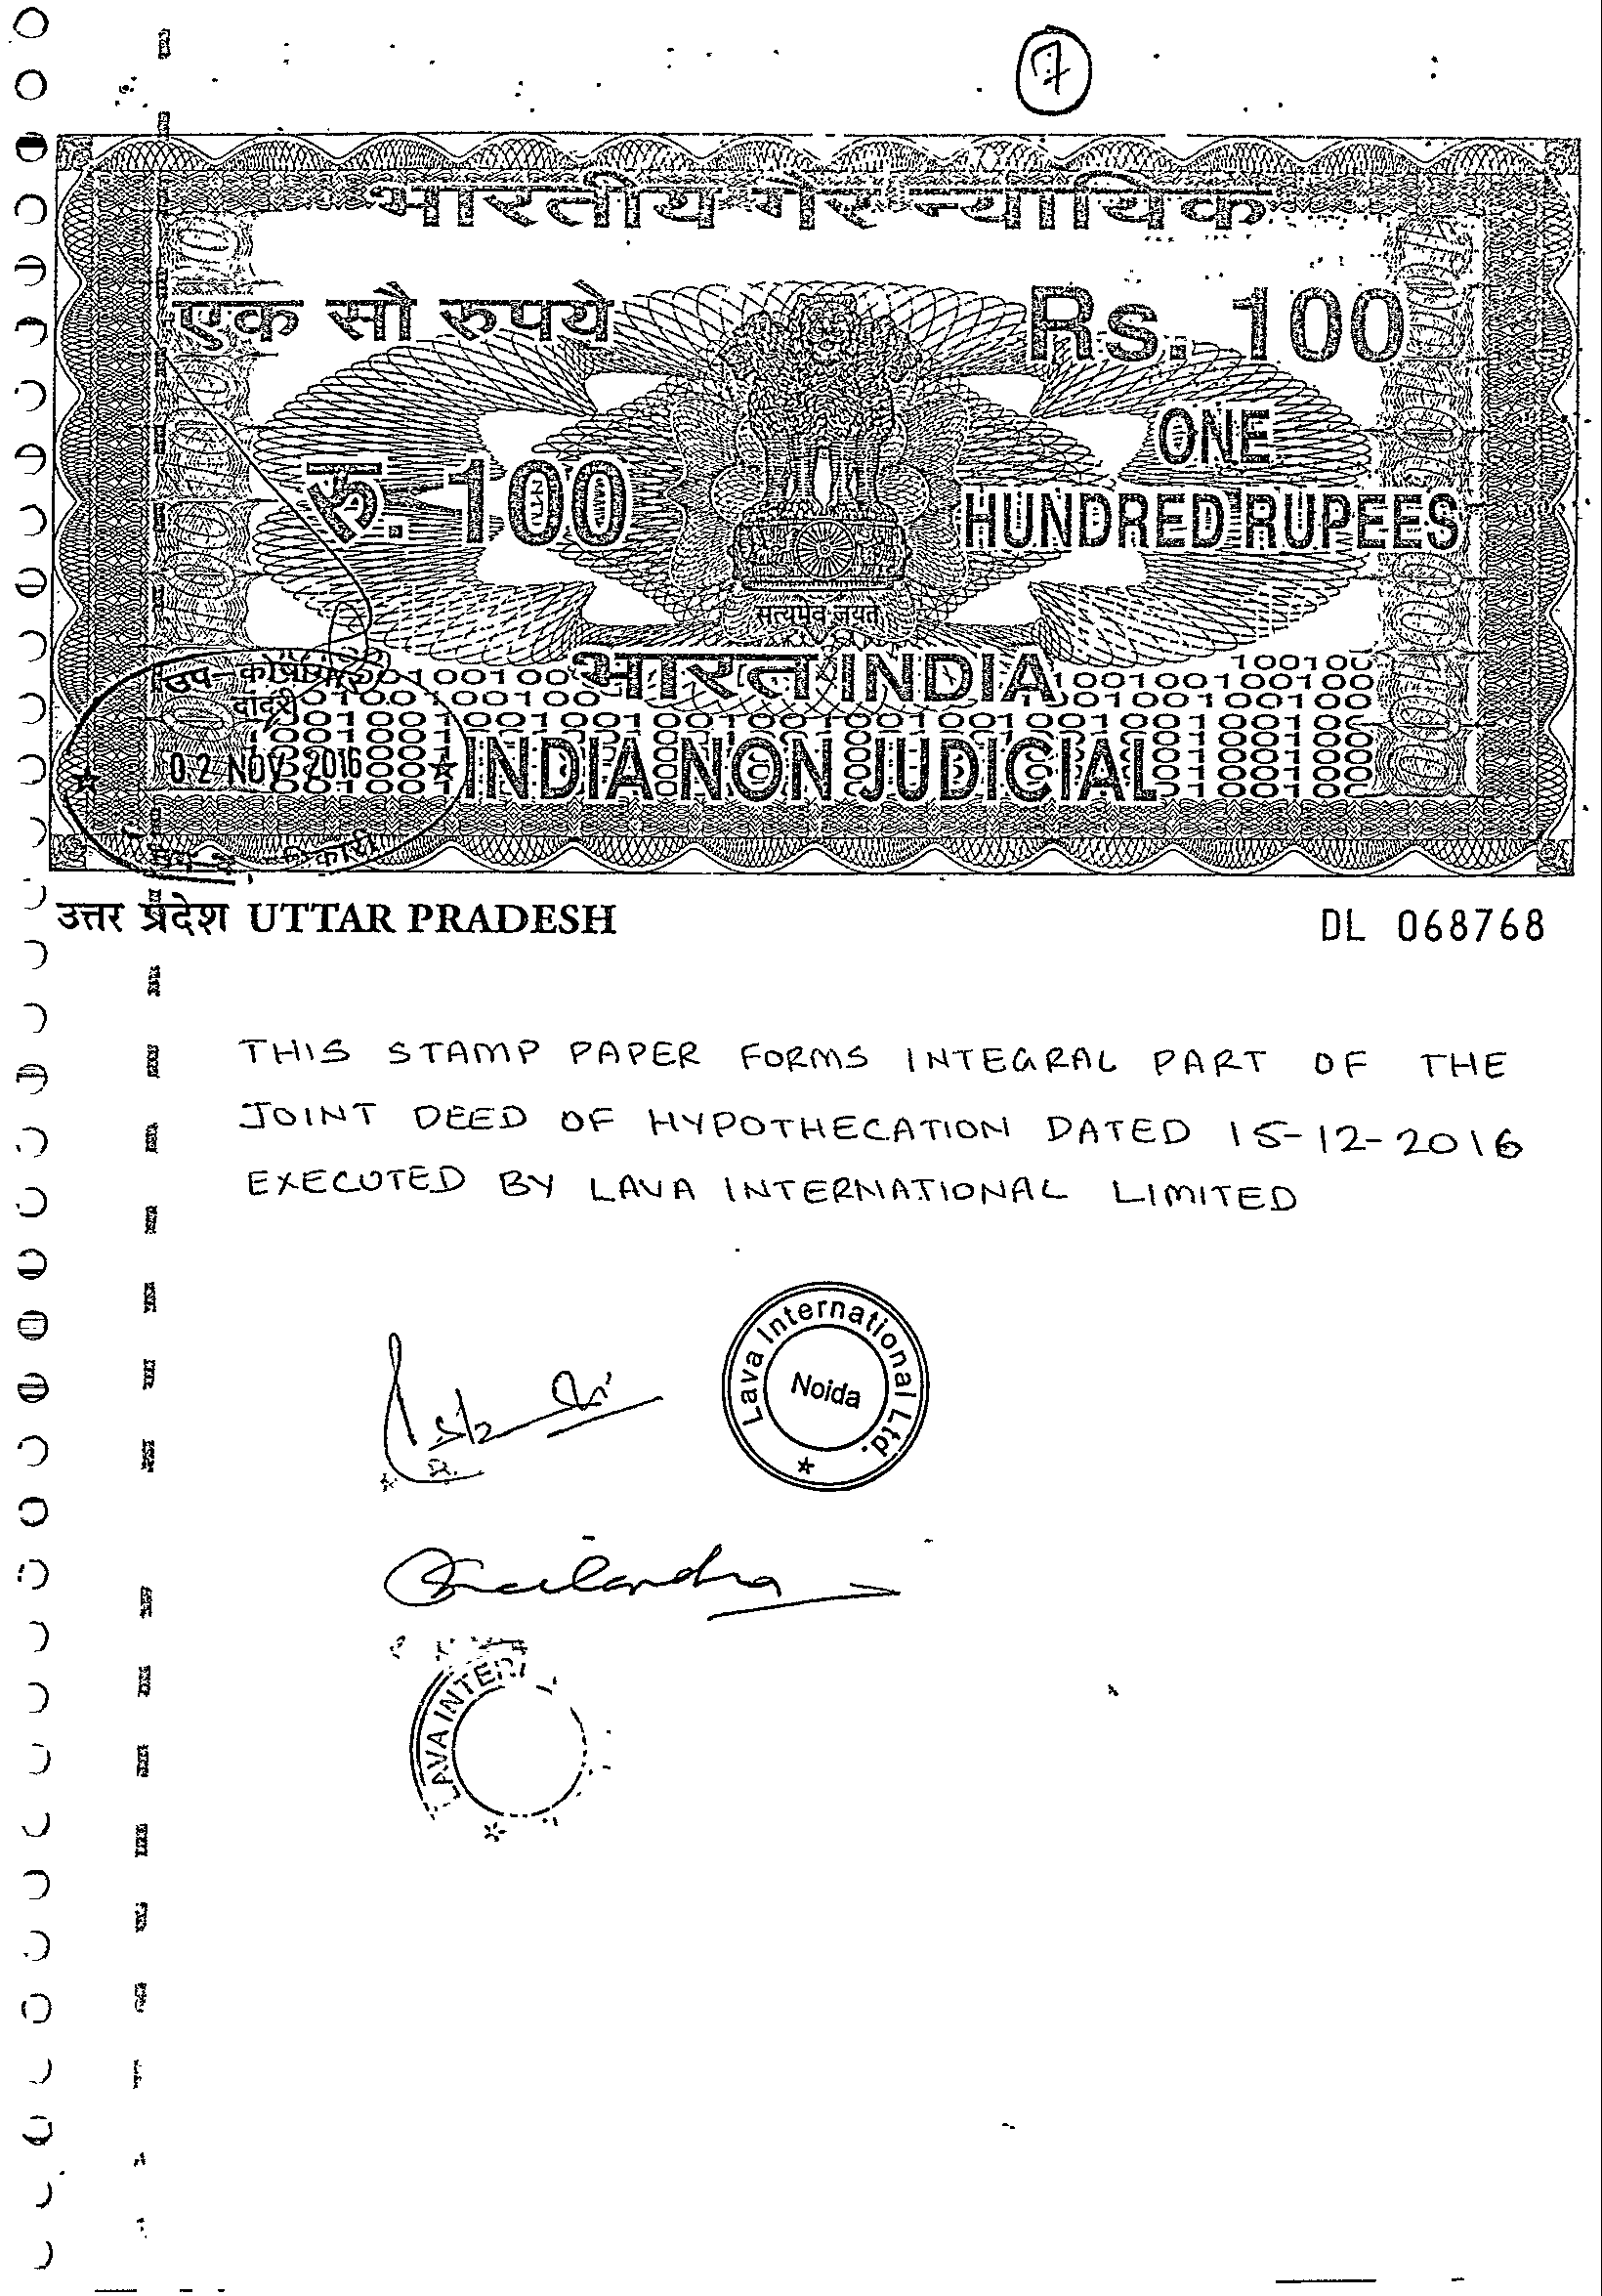 7
भारतीय गैर न्यायिक
एक सौ रुपये
Rs. 100
रु. 100
ONE
HUNDRED RUPEES
सत्यमेव जयते
भारत INDIA
INDIA NON JUDICIAL
दादरी
02 NOV 2016
उत्तर प्रदेश UTTAR PRADESH
DL 068768
THIS STAMP PAPER FORMS INTEGRAL PART OF THE
JOINT DEED OF HYPOTHECATION DATED 15-12-2016
EXECUTED BY LAVA INTERNATIONAL LIMITED
Lava International Ltd.
Noida
Shailendra
LAVA INTER